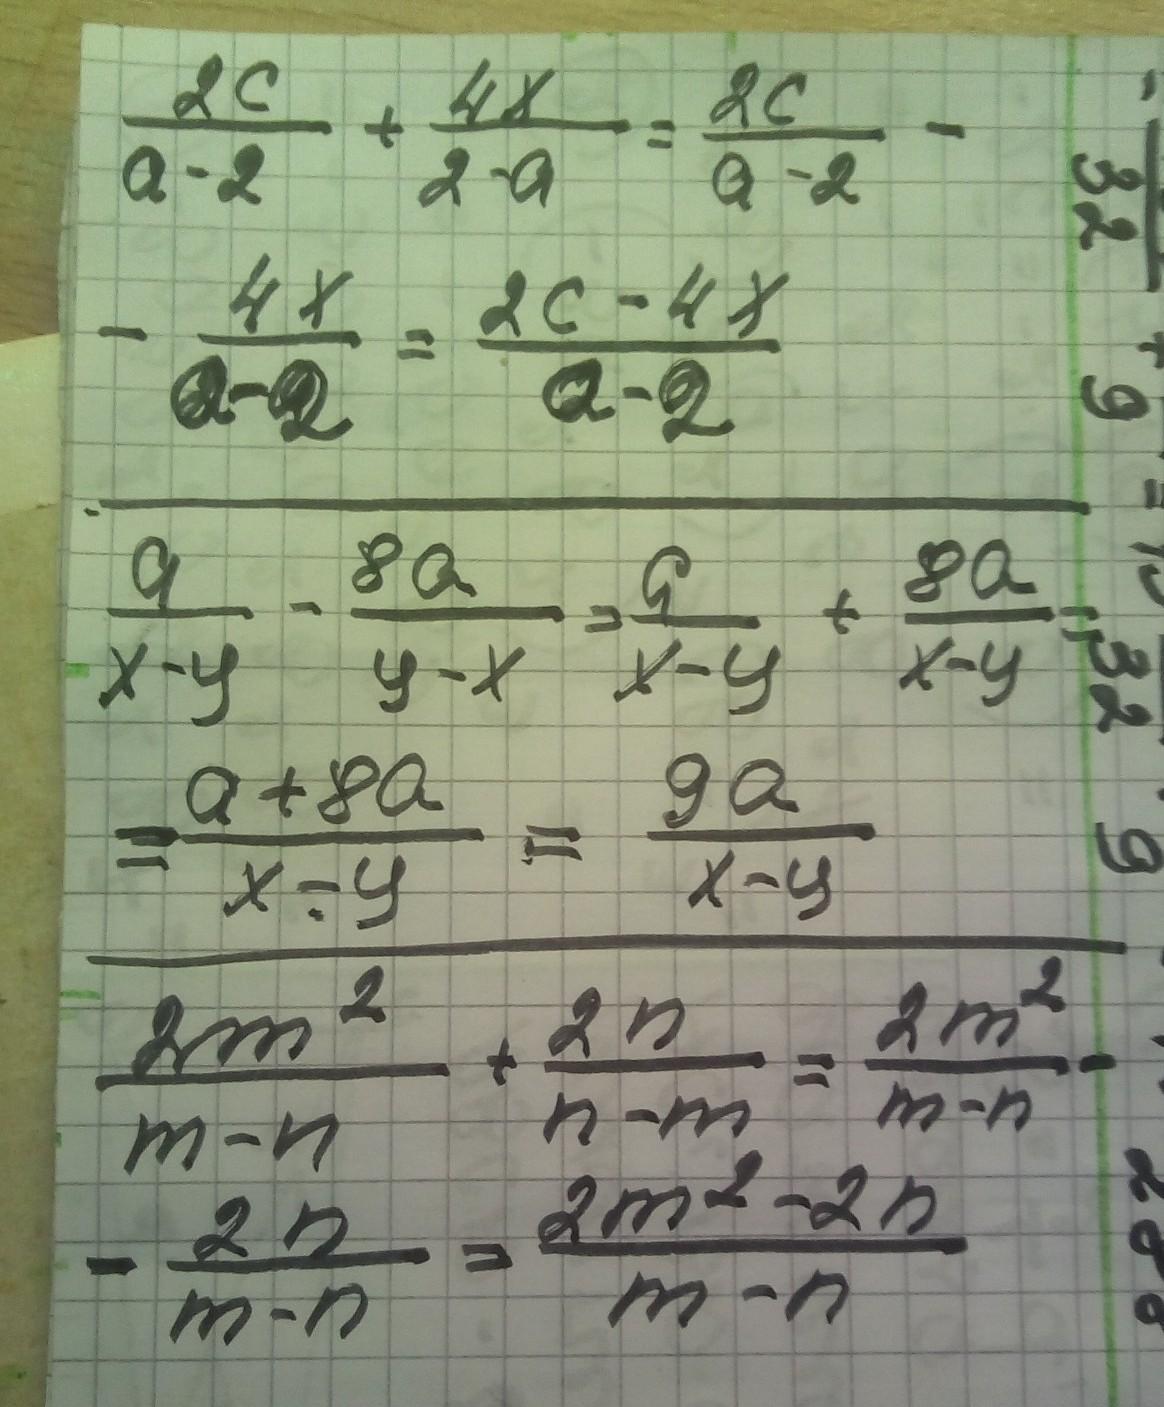 2c/(a-2) + 4x/(2-a) = 2c/(a-2) -
- 4x/(a-2) = (2c-4x)/(a-2)
a/(x-y) - 8a/(y-x) = a/(x-y) + 8a/(x-y) =
= (a+8a)/(x-y) = 9a/(x-y)
2m²/(m-n) + 2n/(n-m) = 2m²/(m-n) -
- 2n/(m-n) = (2m²-2n)/(m-n)